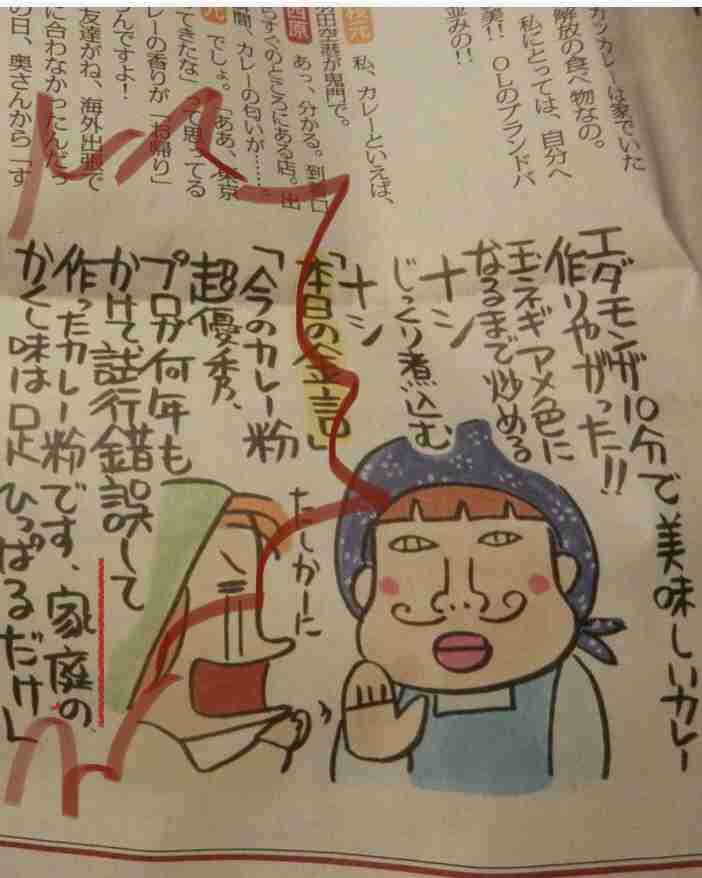 カツカレーは家でいた
解放の食べ物なの。
私にとっては、自分へ
美!! OLのブランドバ
並みの!!
枝元 私、カレーといえば、
羽田空港が鬼門で。
西原 あっ、分かる。到着口
らすぐのところにある店。出
間、カレーの匂いが……。
元 でしょ。「ああ、東京
てきたな」って思ってる
レーの香りが「お帰り」
んですよ!
友達がね、海外出張で
に合わなかったんだっ
の日、奥さんから「す
エダモンが10分で美味しいカレー
作りやがった!!
玉ネギアメ色に
なるまで炒める
ナシ
じっくり煮込む
ナシ
「本日の金言」
「今のカレー粉
超優秀、
プロが何年も
かけて試行錯誤して
作ったカレー粉です、家庭の
かくし味は足ひっぱるだけ」
たしかーに